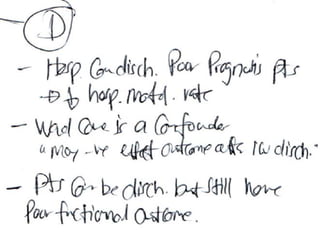 D
- Hosp. Can disch. Poor Prognosis pts
→ ↓ hosp. mortal. rate
- Ward Care is a Confounder
" may -ve effect outcome after ICU disch."
- Pts Can be disch. but still have
Poor functional outcome.